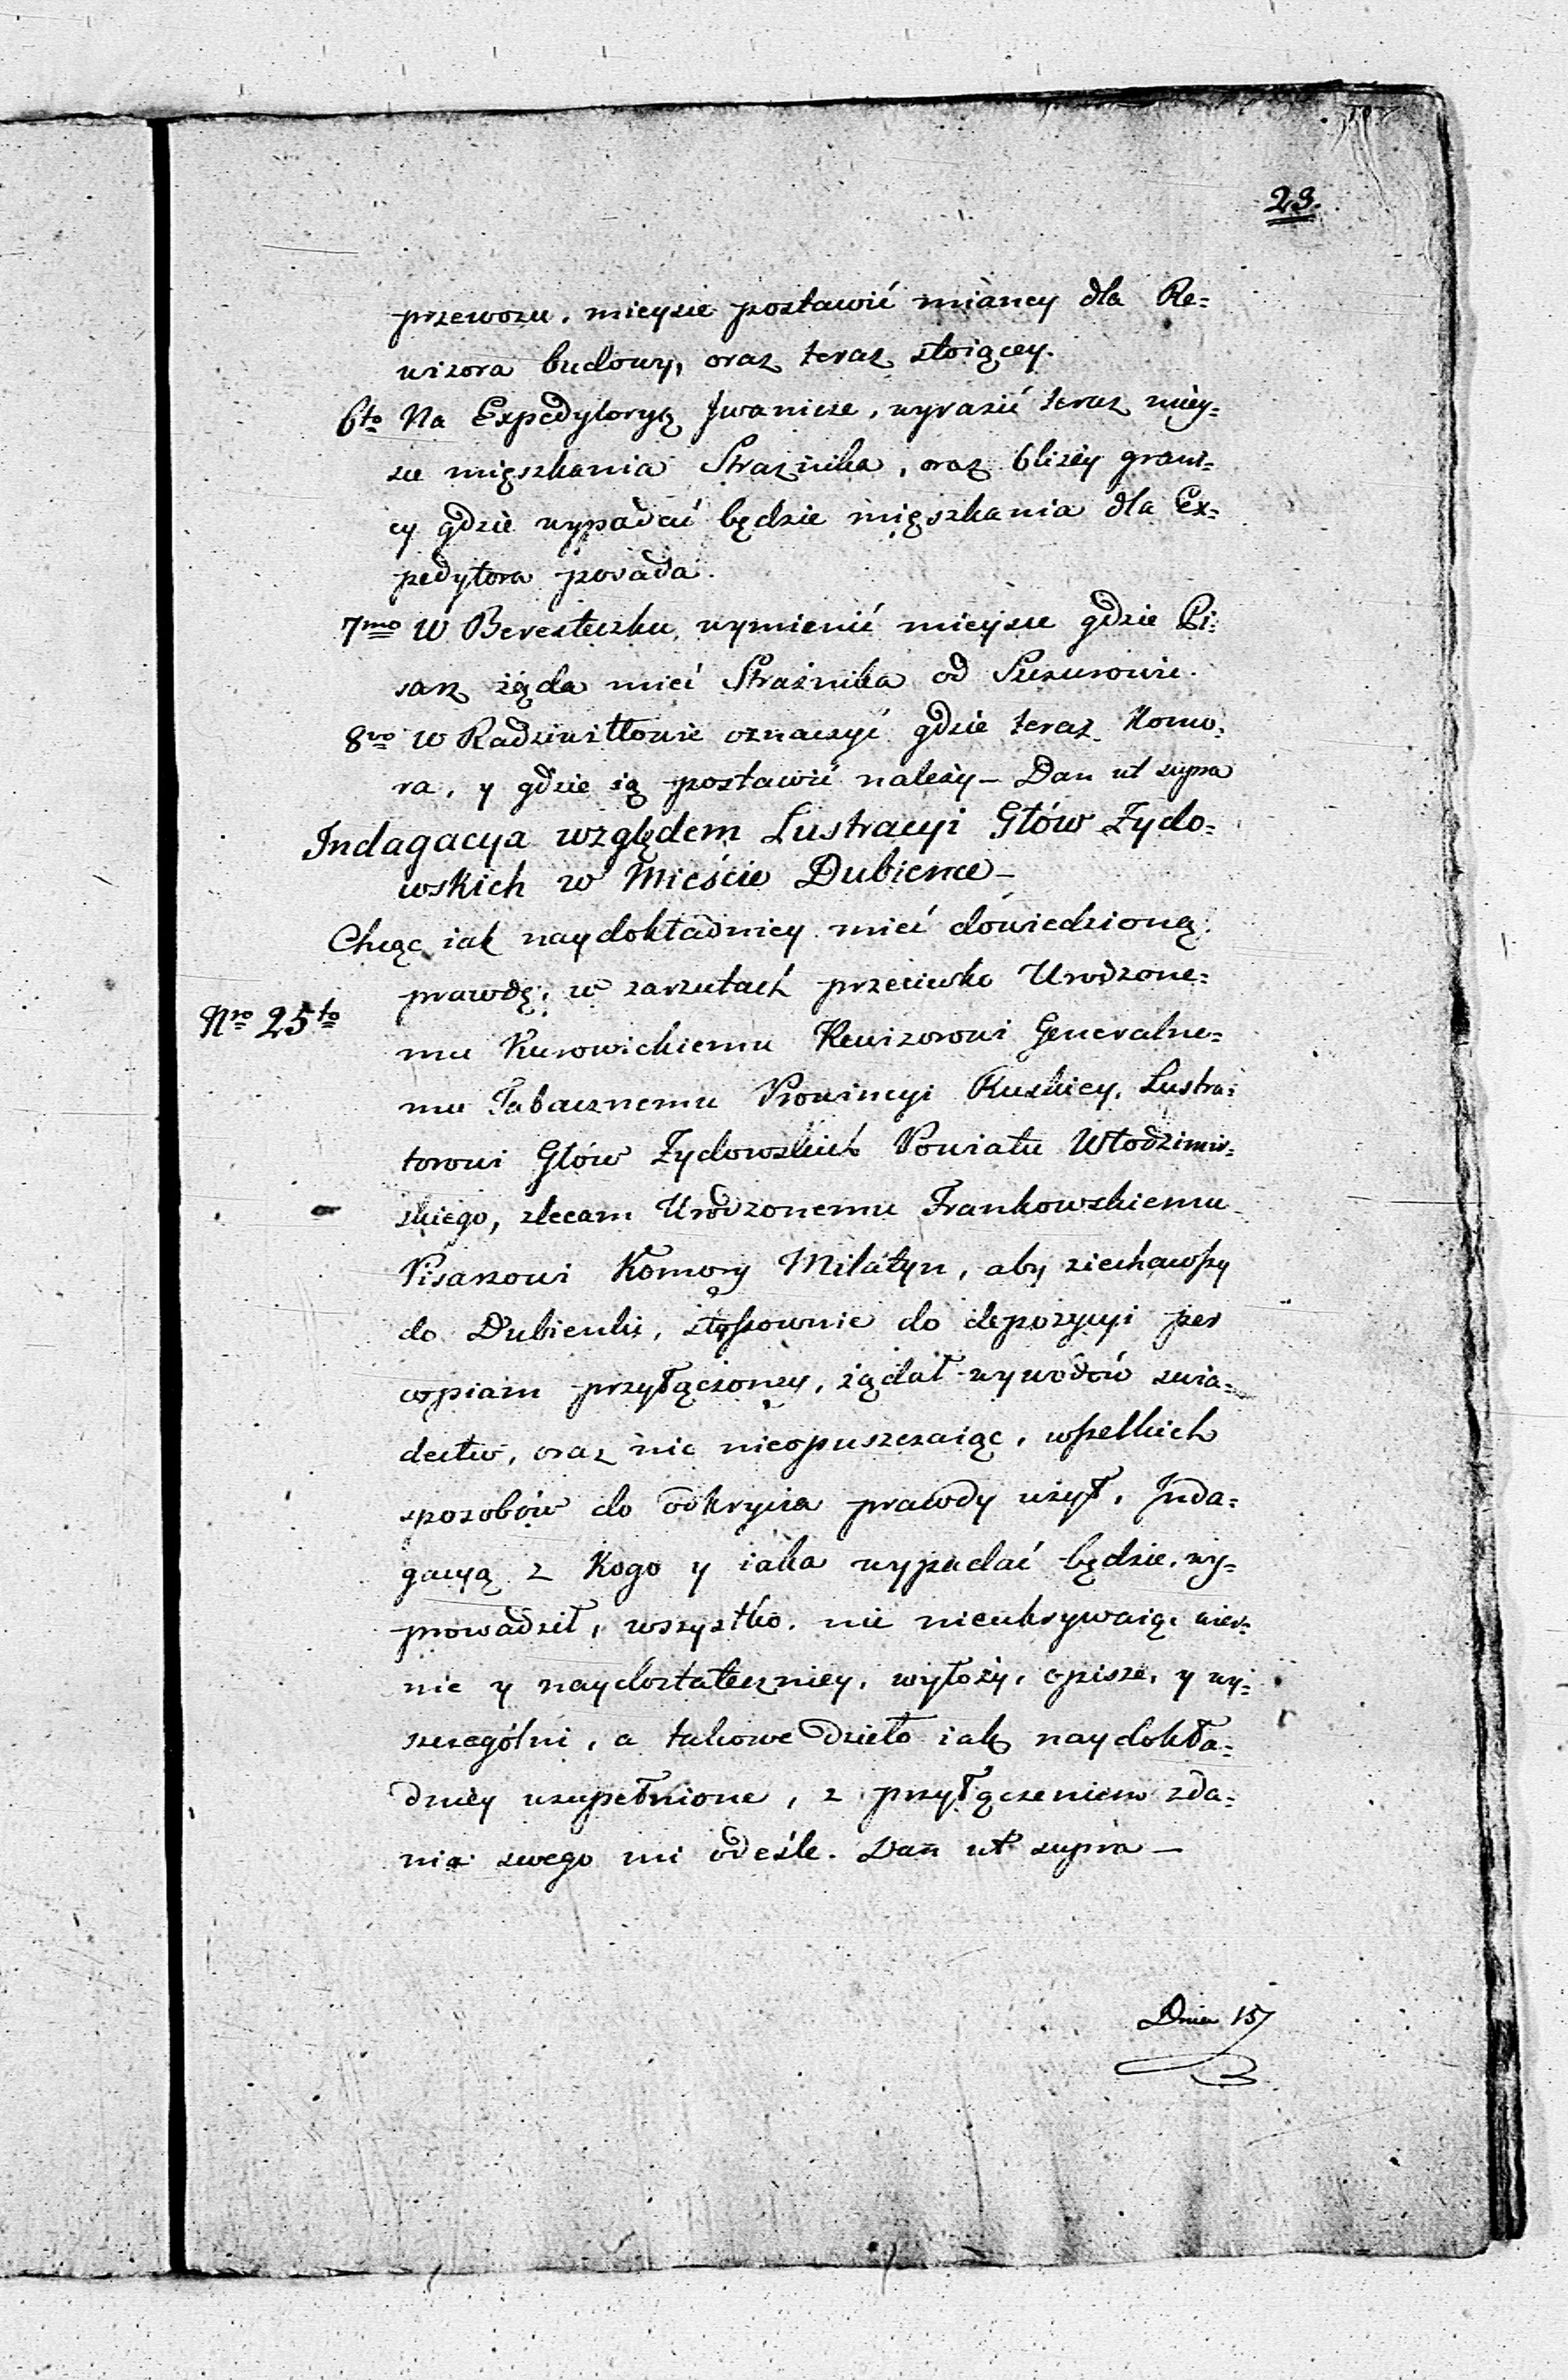 23.
przewozu, mieysce postawić mianey dla Re=
wizora budowy, oraz teraz stoiącey.
6to Na Expedytoryą Iwanicze, wyrazić teraz miey=
sce mięszkania Strażnika, oraz bliżey grani=
cy gdzie wypadać będzie mięszkania dla Ex=
pedytora posada.
7mo W Beresteczku, wymienić mieysce gdzie Pi=
sarz żąda mieć Strażnika od Szczurowic.
8vo W Radziwiłłowie oznaczyć gdzie teraz Komo=
ra, y gdzie ią postawić należy — Dan ut supra
Indagacya względem Lustracyi Głów Żydo=
wskich w Mieście Dubience —
Chcąc iak naydokładniey mieć dowiedzioną
prawdę, w zarzutach przeciwko Urodzone=
Nro 25to
mu Kurowickiemu Rewizorowi Generalne=
mu Tabacznemu Prowincyi Ruskiey, Lustra=
torowi Głów Żydowskich Powiatu Włodzimir=
skiego, zlecam Urodzonemu Frankowskiemu
Pisarzowi Komory Milatyn, aby ziechawszy
do Dubienki, stosownie do depozycyi per
copiam przyłączoney, żądał wywodów świa=
dectw, oraz nic nieopuszczaiąc, wszelkich
sposobów do odkrycia prawdy użył, Inda=
gacyą z Kogo y iaka wypadać będzie, wy=
prowadził, wszystko, nic nieukrywaiąc wier=
nie y naydostateczniey, wyłoży, opisze, y wy=
szczególni, a takowe Dzieło iak naydokła=
dniey uzupełnione, z przyłączeniem zda=
nia swego mi odeśle. Dan ut supra —
Dnia 15